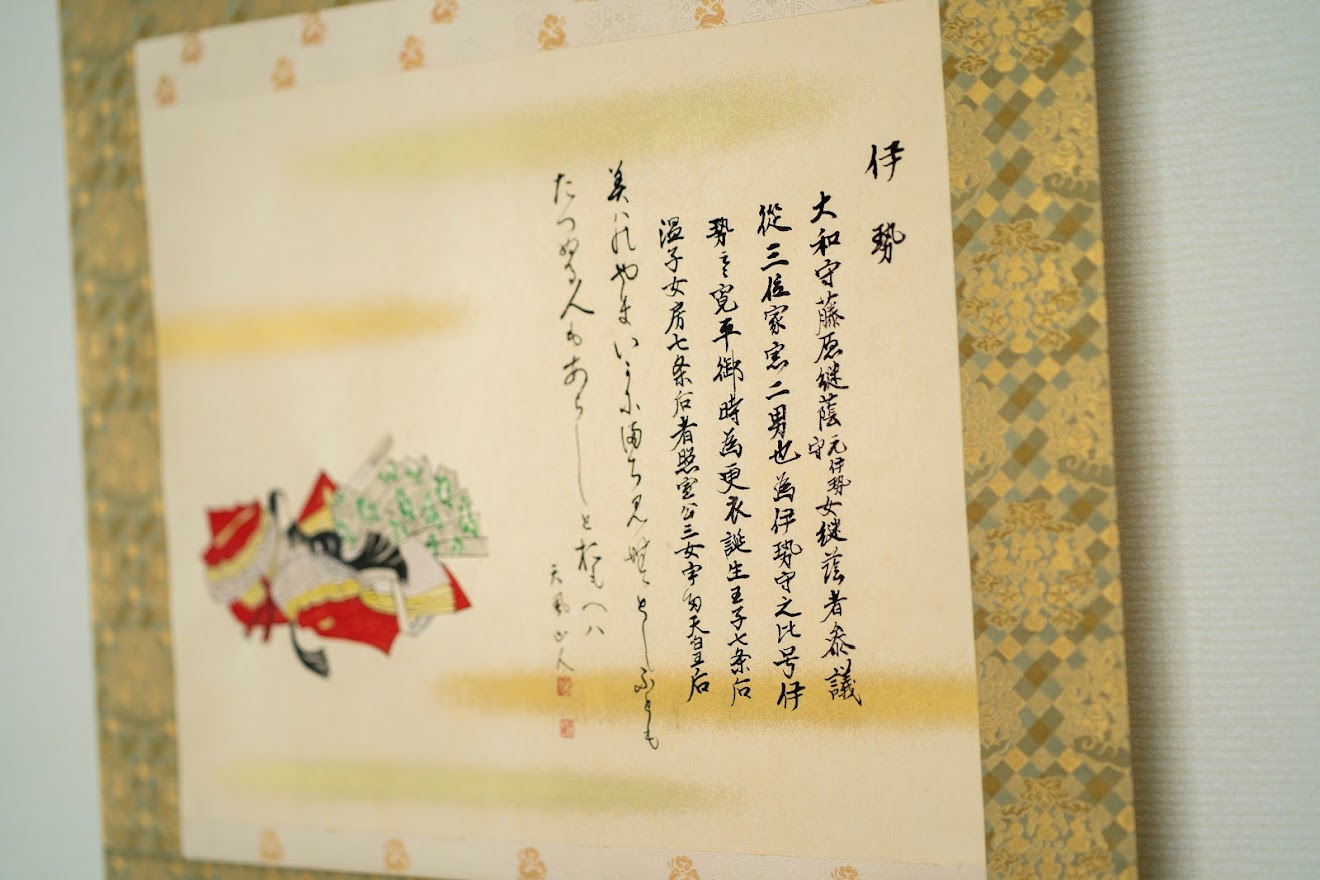 伊勢
大和守藤原継蔭元伊勢守女継蔭者参議
従三位家宗二男也為伊勢守之比号伊
勢云寛平御時為更衣誕生王子七条后
温子女房七条后者照宣公三女宇多天皇后
美八乃やまい可尓満ち見無としふとも
たつぬる人もあらしとおもへハ
天風山人